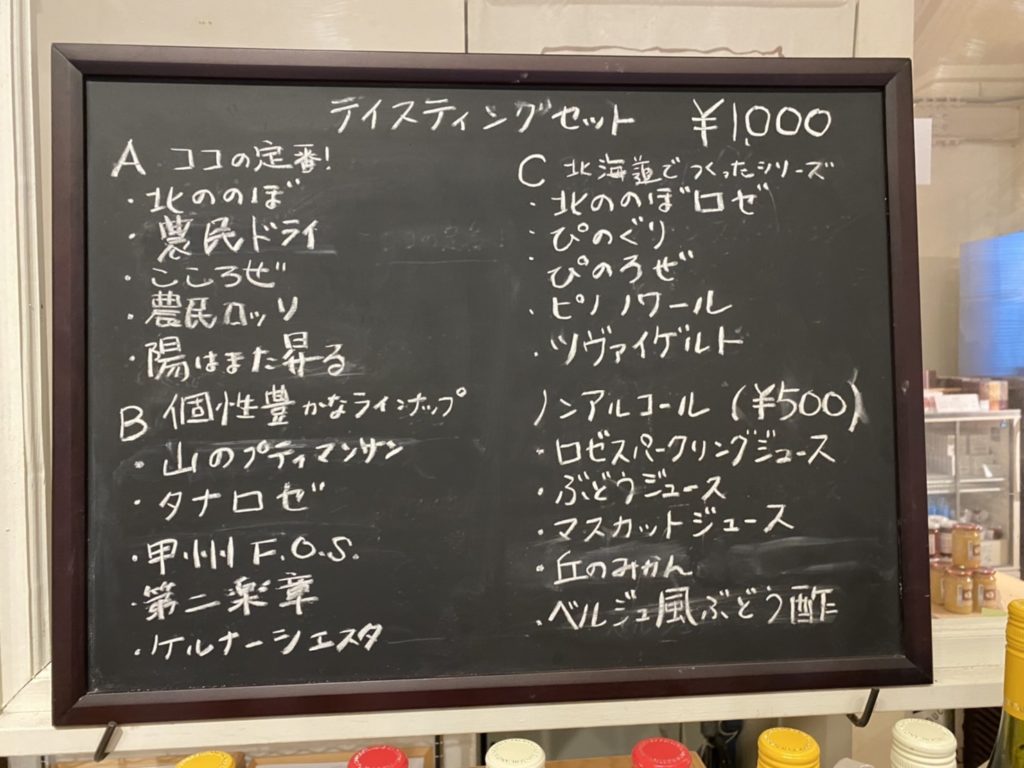 テイスティングセット ¥1,000
A ココの定番!
・北ののぼ
・農民ドライ
・こころぜ
・農民ロッソ
・陽はまた昇る
B 個性豊かなラインナップ
・山のプティマンサン
・タナロゼ
・甲州 F.O.S.
・第二楽章
・ケルナーシエスタ
C 北海道でつくったシリーズ
・北ののぼロゼ
・ぴのぐり
・ぴのろぜ
・ピノノワール
・ツヴァイゲルト
ノンアルコール (¥500)
・ロゼスパークリングジュース
・ぶどうジュース
・マスカットジュース
・丘のみかん
・ベルジュ風ぶどう酢